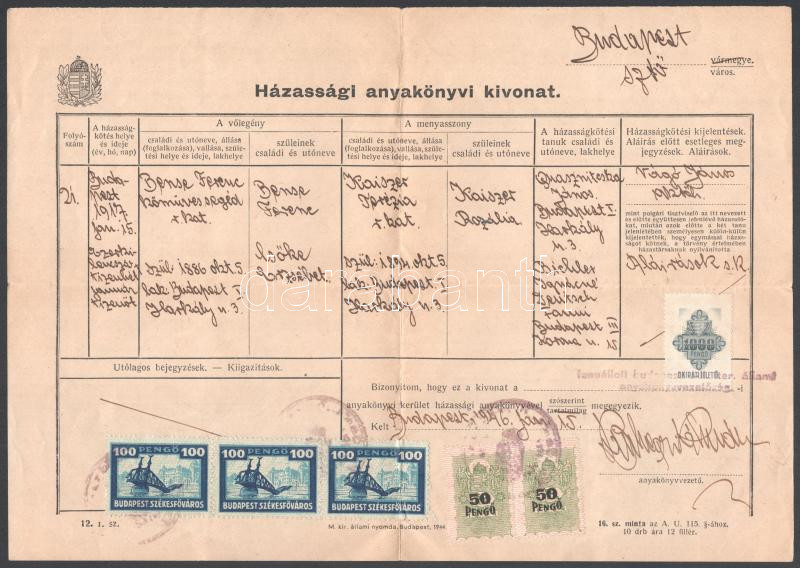 Budapest
szfő
vármegye.
város.
Házassági anyakönyvi kivonat.
Folyó-
szám
A házasság-
kötés helye
és ideje
(év, hó, nap)
A vőlegény
családi és utóneve, állása
(foglalkozása), vallása, szüle-
tési helye és ideje, lakhelye
szüleinek
családi és utóneve
A menyasszony
családi és utóneve, állása
(foglalkozása), vallása, szüle-
tési helye és ideje, lakhelye
szüleinek
családi és utóneve
A házasságkötési
tanuk családi és
utóneve, lakhelye
Házasságkötési kijelentések.
Aláírás előtt esetleges meg-
jegyzések. Aláírások.
21.
Buda-
pest
1917
jan. 15.
Ezerki-
lencszáz-
tizenhét
január
tizenöt
Bense Ferenc
kőmíves segéd
r. kat.
Szül. 1886 okt. 5.
lak. Budapest I
Harkály u. 3.
Bense
Ferenc
Szőke
Erzsébet
Kaiszer
Terézia
r. kat.
lak. Budapest I
Harkály u. 3.
Kaiszer
Rozália
János
Budapest I.
Harkály
u. 3
Budapest III
u. 15
Vágó János
mint polgári tisztviselő az itt nevezett
és előtte együttesen jelenlévő házasulók-
kat, miután azok előtte a két tanu
jelenlétében személyesen külön-külön
kijelentették, hogy egymással házas-
ságot kötnek, a törvény értelmében
házastársaknak nyilvánította.
Aláírások s.k.
darabanth
1000
PENGŐ
OKIRATI ILLETÉK
Utólagos bejegyzések. — Kiigazítások.
Bizonyítom, hogy ez a kivonat a
-i
anyakönyvi kerület házassági anyakönyvével szószerint tartalmilag megegyezik.
Kelt Budapest, 1946. jan. 15.
anyakönyvvezető.
100 PENGŐ 100
BUDAPEST SZÉKESFŐVÁROS
100 PENGŐ 100
BUDAPEST SZÉKESFŐVÁROS
100 PENGŐ 100
BUDAPEST SZÉKESFŐVÁROS
50
PENGŐ
50
PENGŐ
12. r. sz.
M. kir. állami nyomda, Budapest, 1944.
16. sz. minta az A. U. 115. §-ához.
10 drb ára 12 fillér.